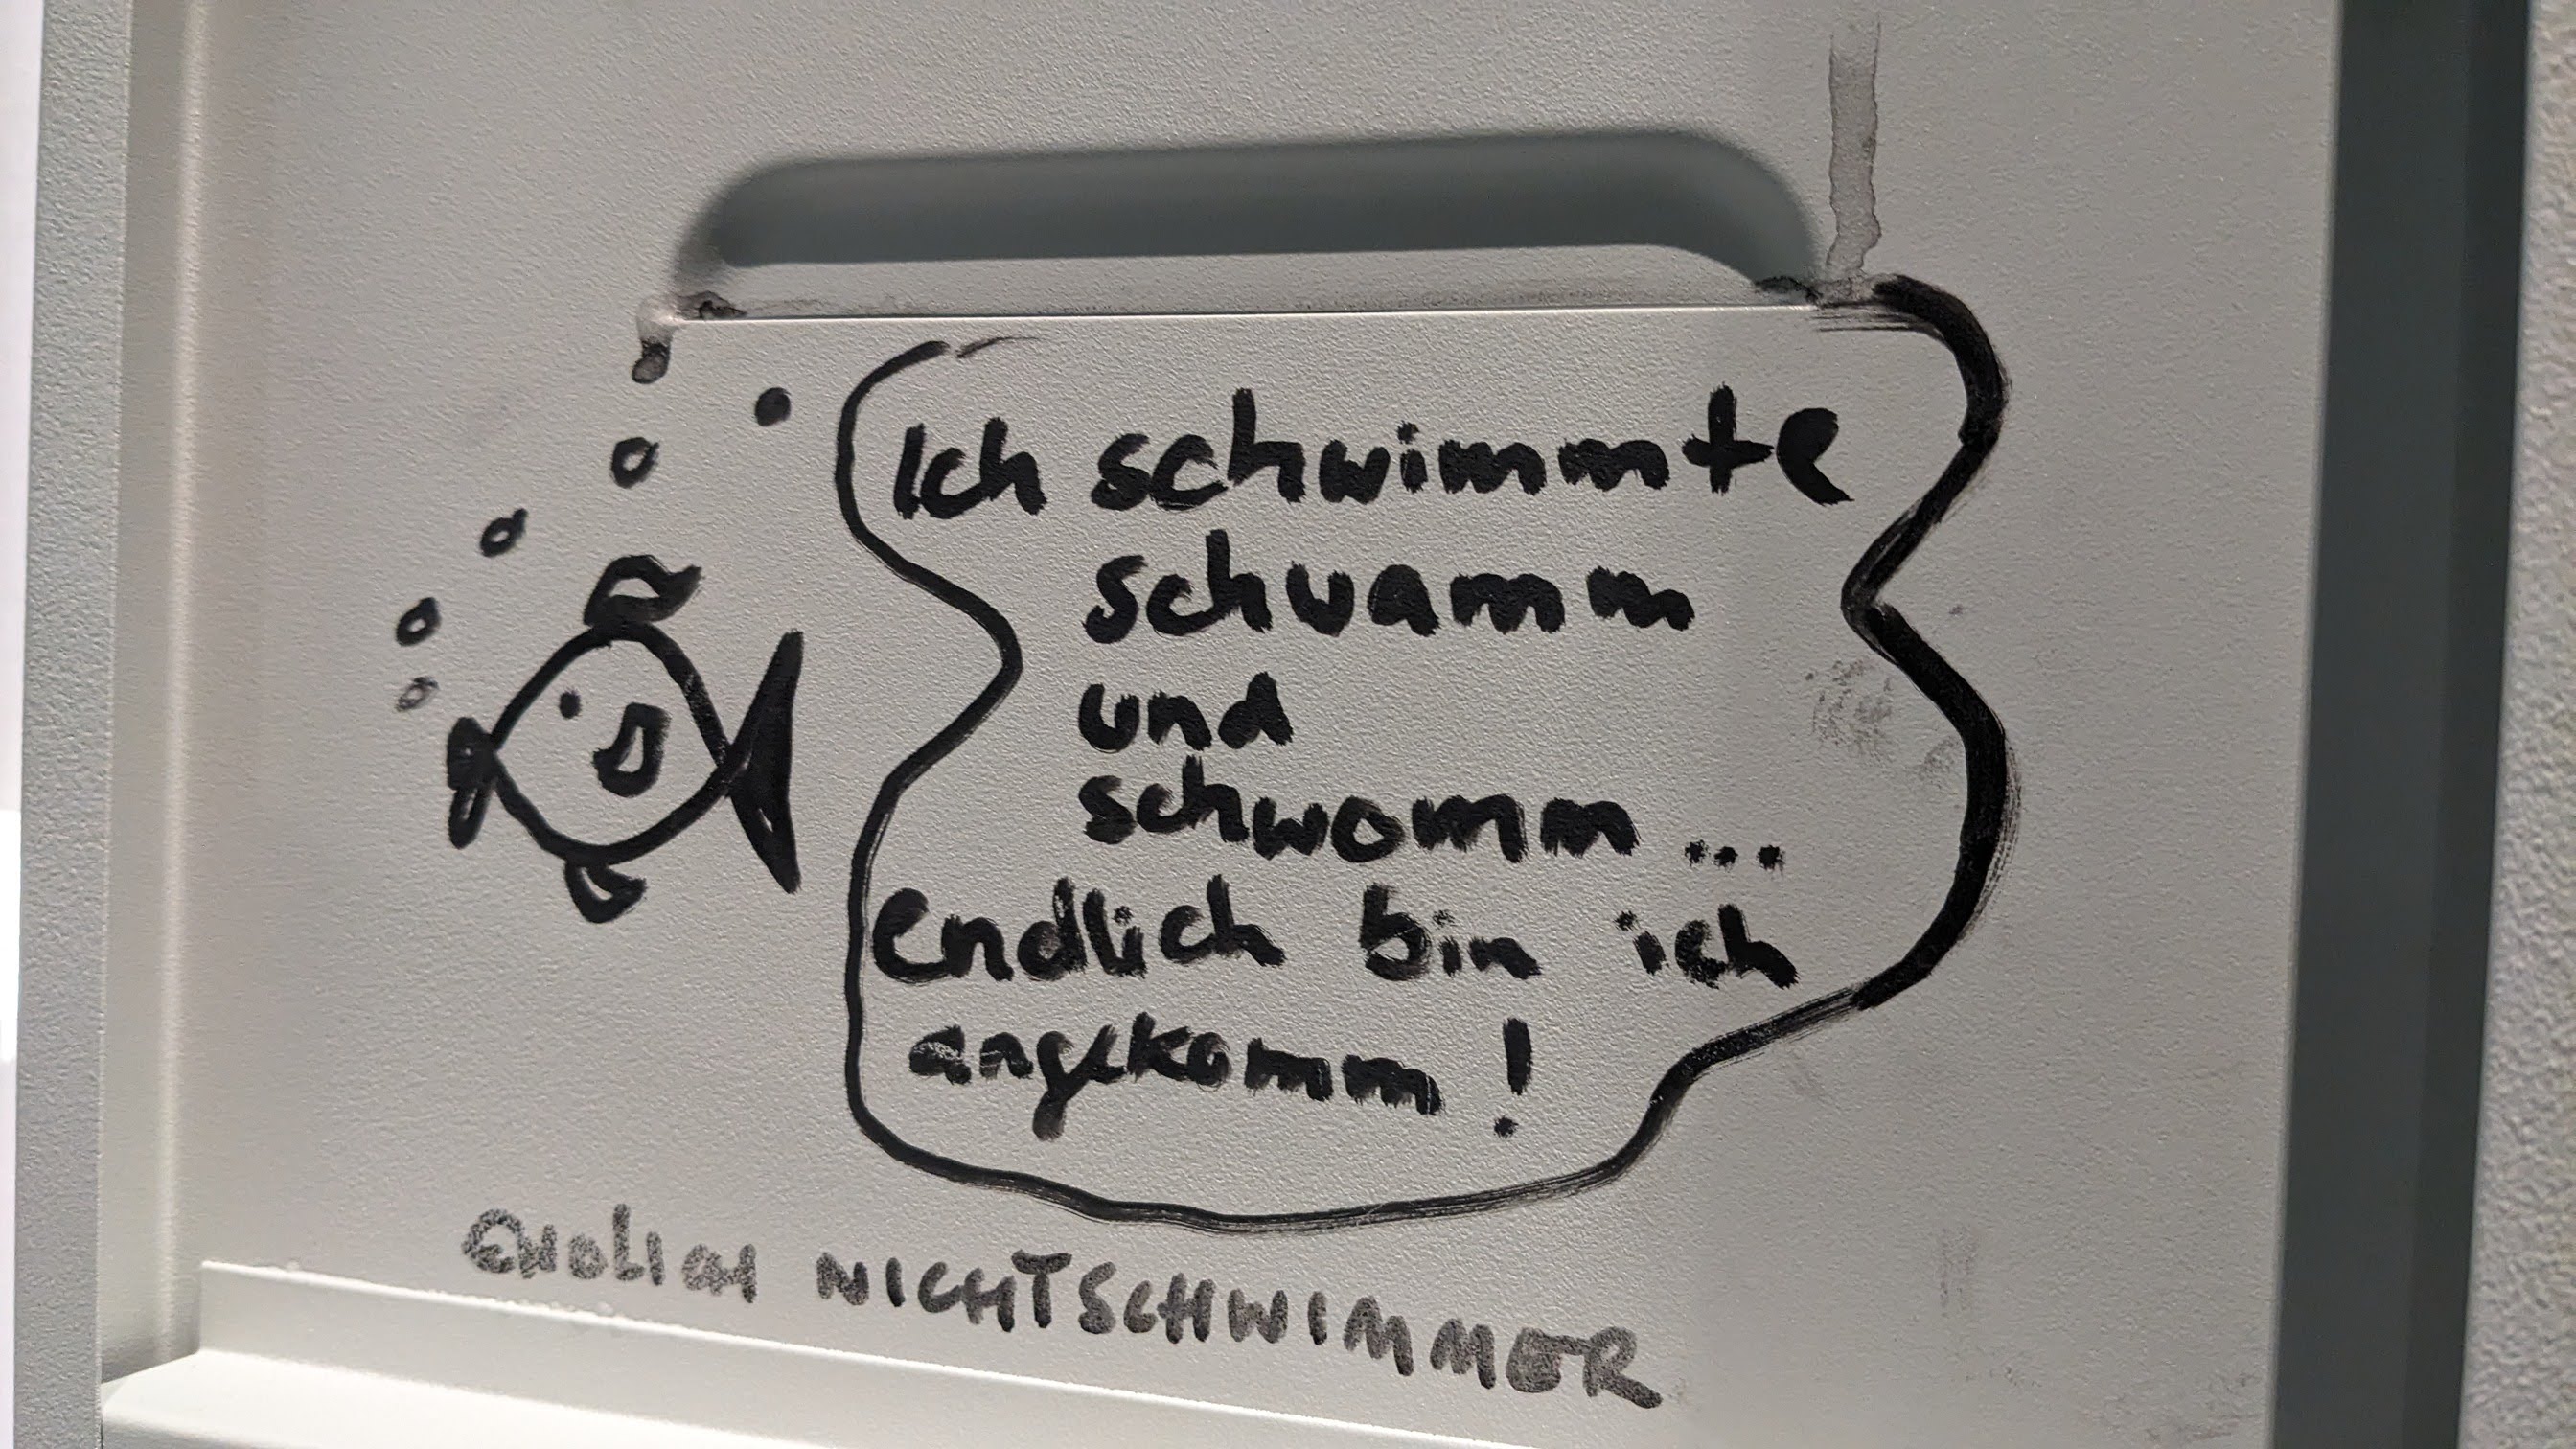 Ich schwimmte
schwamm
und
schwomm...
endlich bin ich
angekomm!
ENDLICH NICHTSCHWIMMER